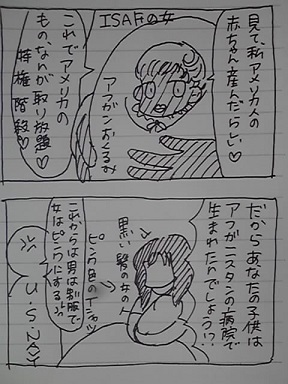 ISAFの女
見て、私アメリカ人の
赤ちゃん産んだらしい♡
アフガンおくるみ
これでアメリカの
ものなんか取り放題
特権階級♡
だからあなたの子供は
アフガニスタンの病院で
生まれたんでしょう!?
黒い髪の女の人
ピンク色のTシャツ
これからは男は別服で
女はピンクにする
U.S.NAVY